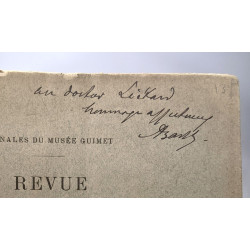 au doctor Liétard
hommage affectueux
A Barth
NALES DU MUSÉE GUIMET
REVUE